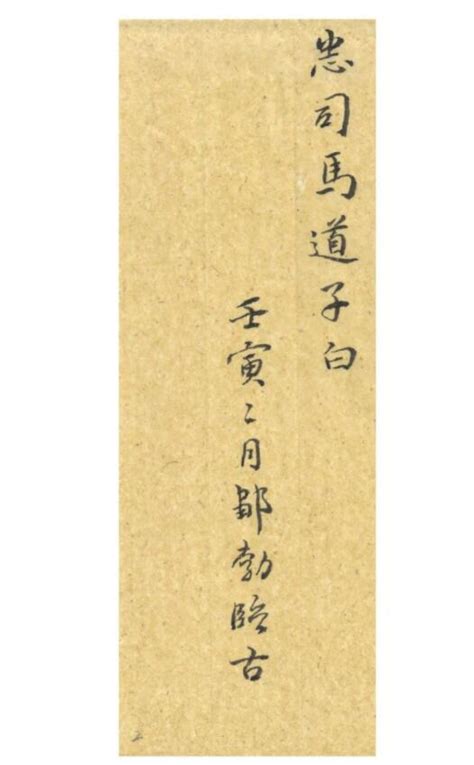 悉司馬道子白
壬寅二月鄒勃臨古
2